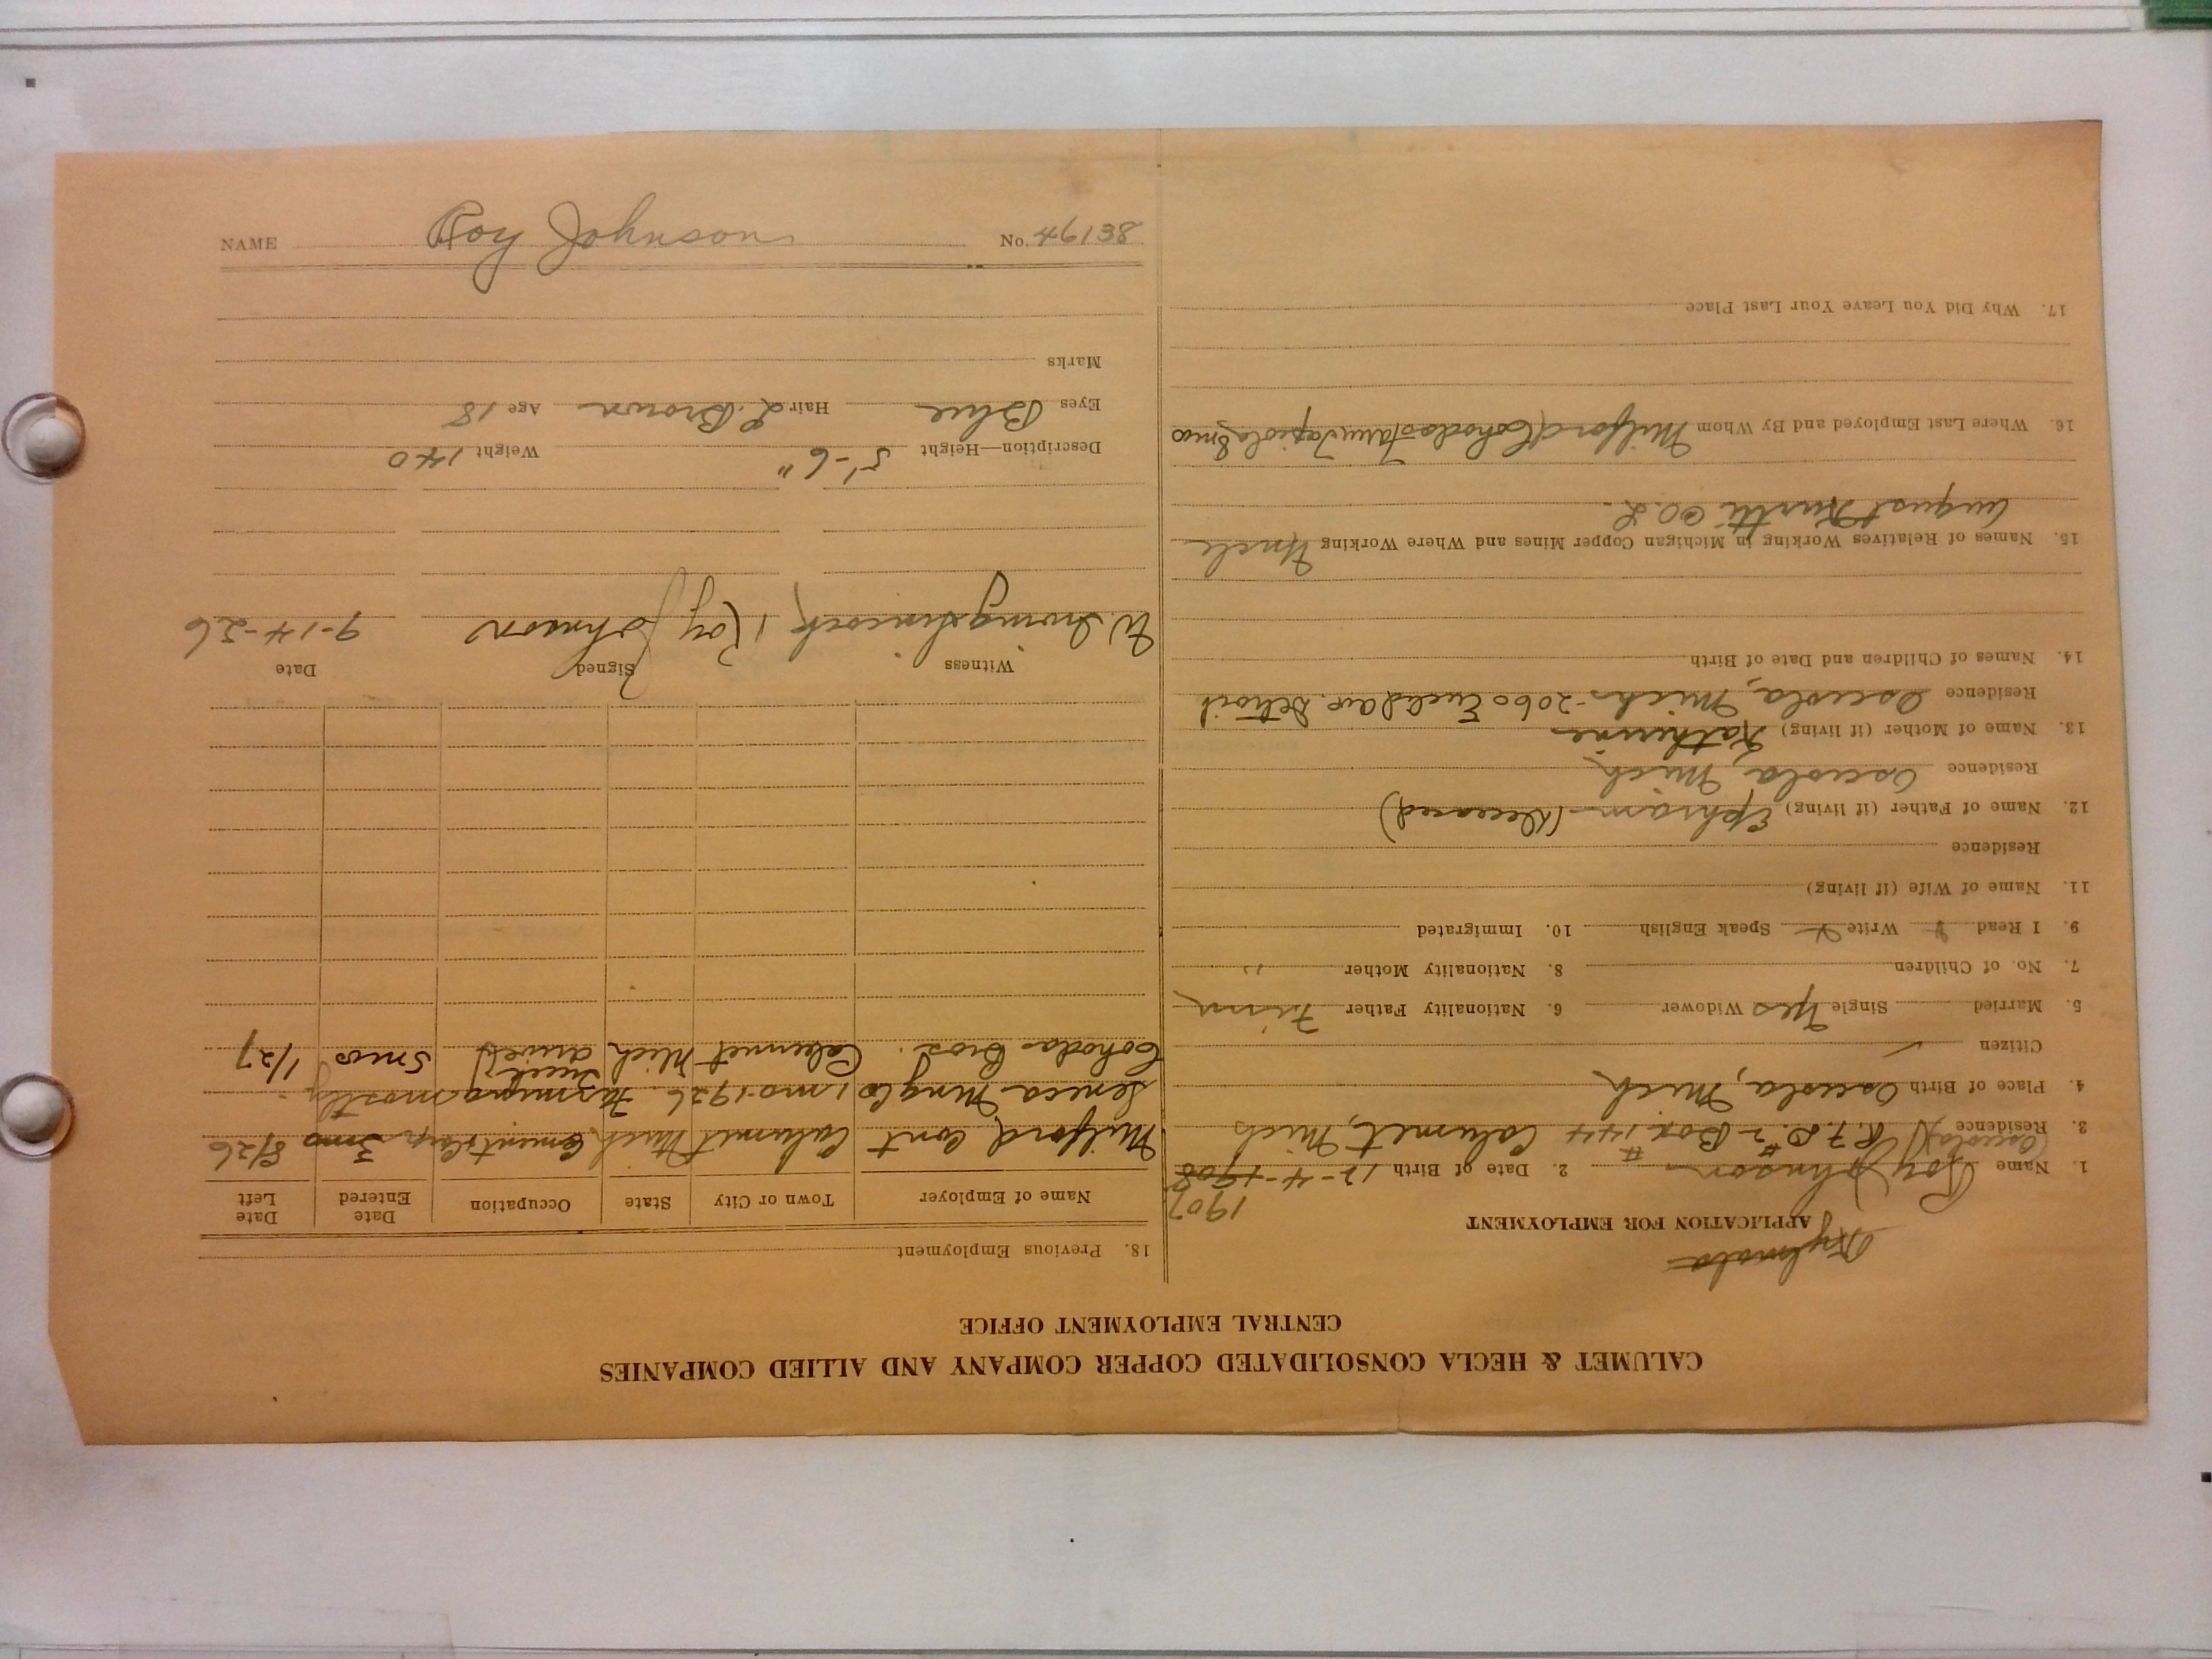 CALUMET & HECLA CONSOLIDATED COPPER COMPANY AND ALLIED COMPANIES
CENTRAL EMPLOYMENT OFFICE
APPLICATION FOR EMPLOYMENT
1907
1. Name Roy Johnson 2. Date of Birth 12-4-1908
(Osceola)
3. Residence R.F.D. #2 - Box #144 Calumet, Mich
4. Place of Birth Osceola, Mich
Citizen ✓
5. Married Single Yes Widower 6. Nationality Father Finn
7. No. of Children 8. Nationality Mother "
9. I Read Write Speak English 10. Immigrated
11. Name of Wife (if living)
Residence
12. Name of Father (if living) Ephriam - (Deceased)
Residence Osceola, Mich
13. Name of Mother (if living) Katherine
Residence Osceola, Mich - 2060 Euclid ave. Detroit
14. Names of Children and Date of Birth
15. Names of Relatives Working in Michigan Copper Mines and Where Working Uncle
August @ O.L.
16. Where Last Employed and By Whom Milford Cohodas Farm Tapiola 8 mos
17. Why Did You Leave Your Last Place
18. Previous Employment
Name of Employer Town or City State Occupation Date Entered Date Left
Milford Cont Calumet Mich Cement 3 mo 8/26
Seneca Mng Co 1 mo - 1926. Farming mostly -
Cohodas Bros. Calumet Mich Truck driver 5 mos 1/27
Witness Signed Date
W. Irving Roy Johnson 9-14-26
Description—Height 5'-6" Weight 140
Eyes Blue Hair L. Brown Age 18
Marks
NAME Roy Johnson No. 46138